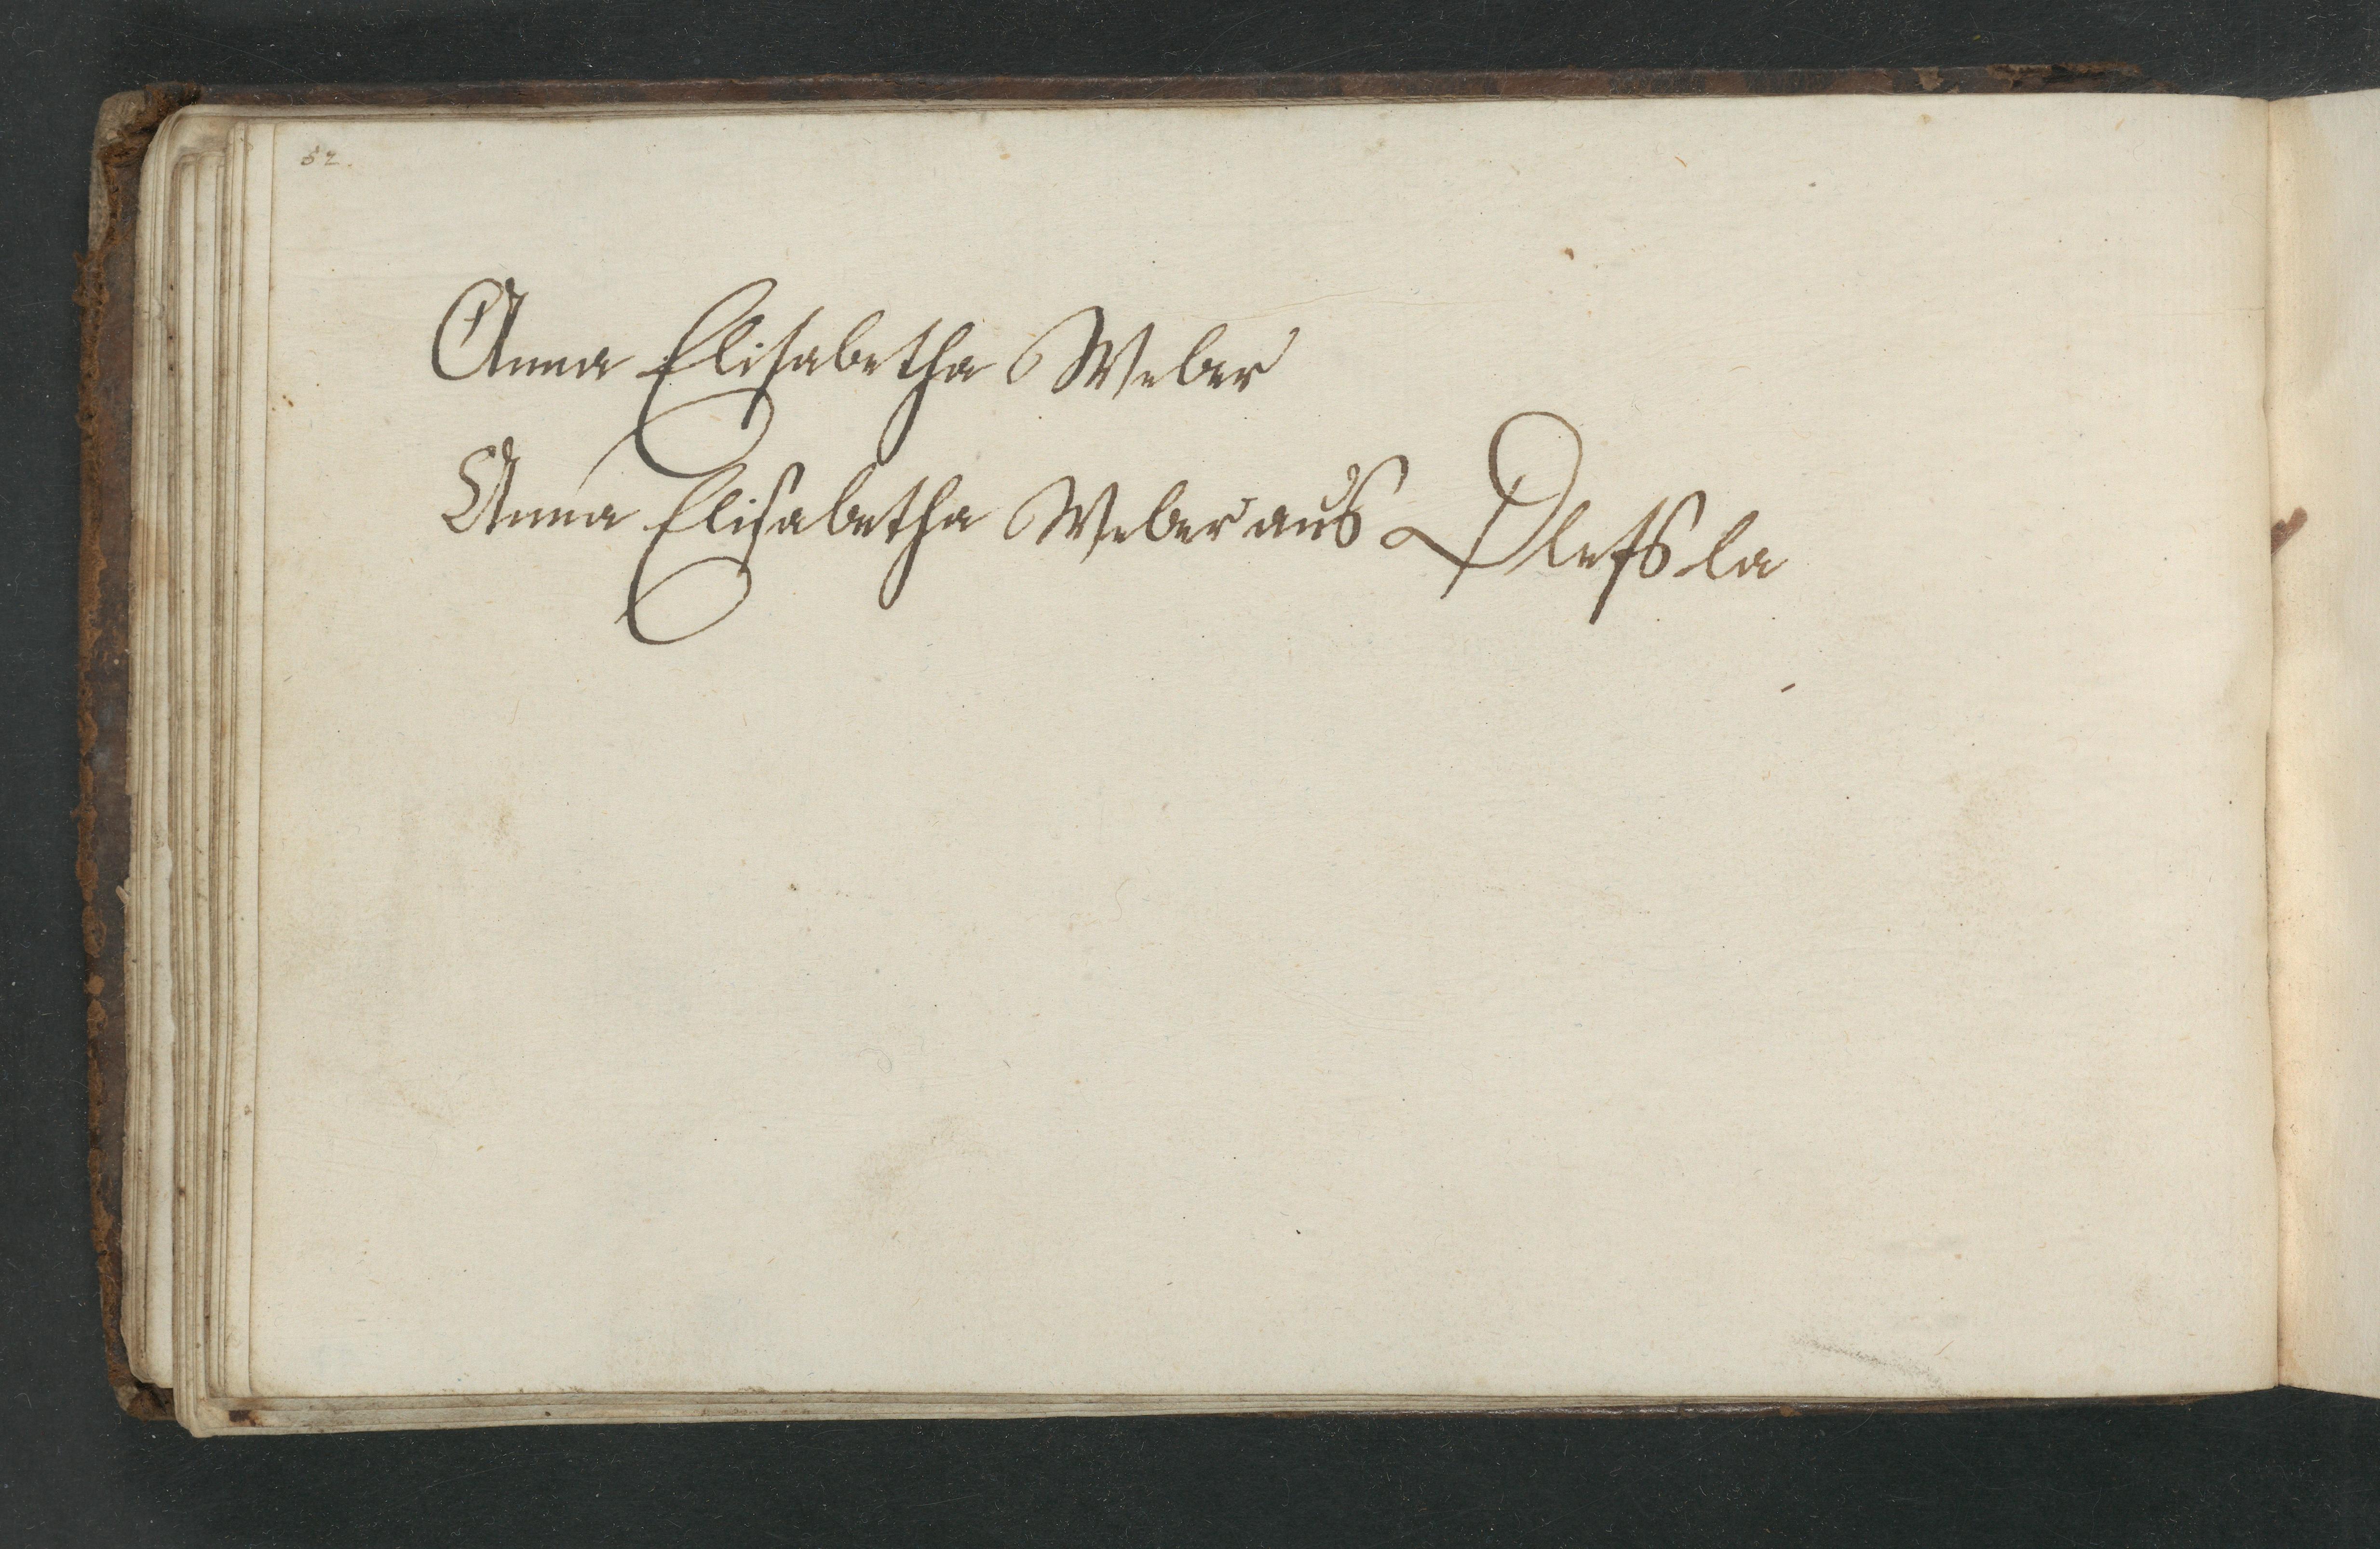 52.
Anna Elisabetha Weber
Anna Elisabetha Weber aus